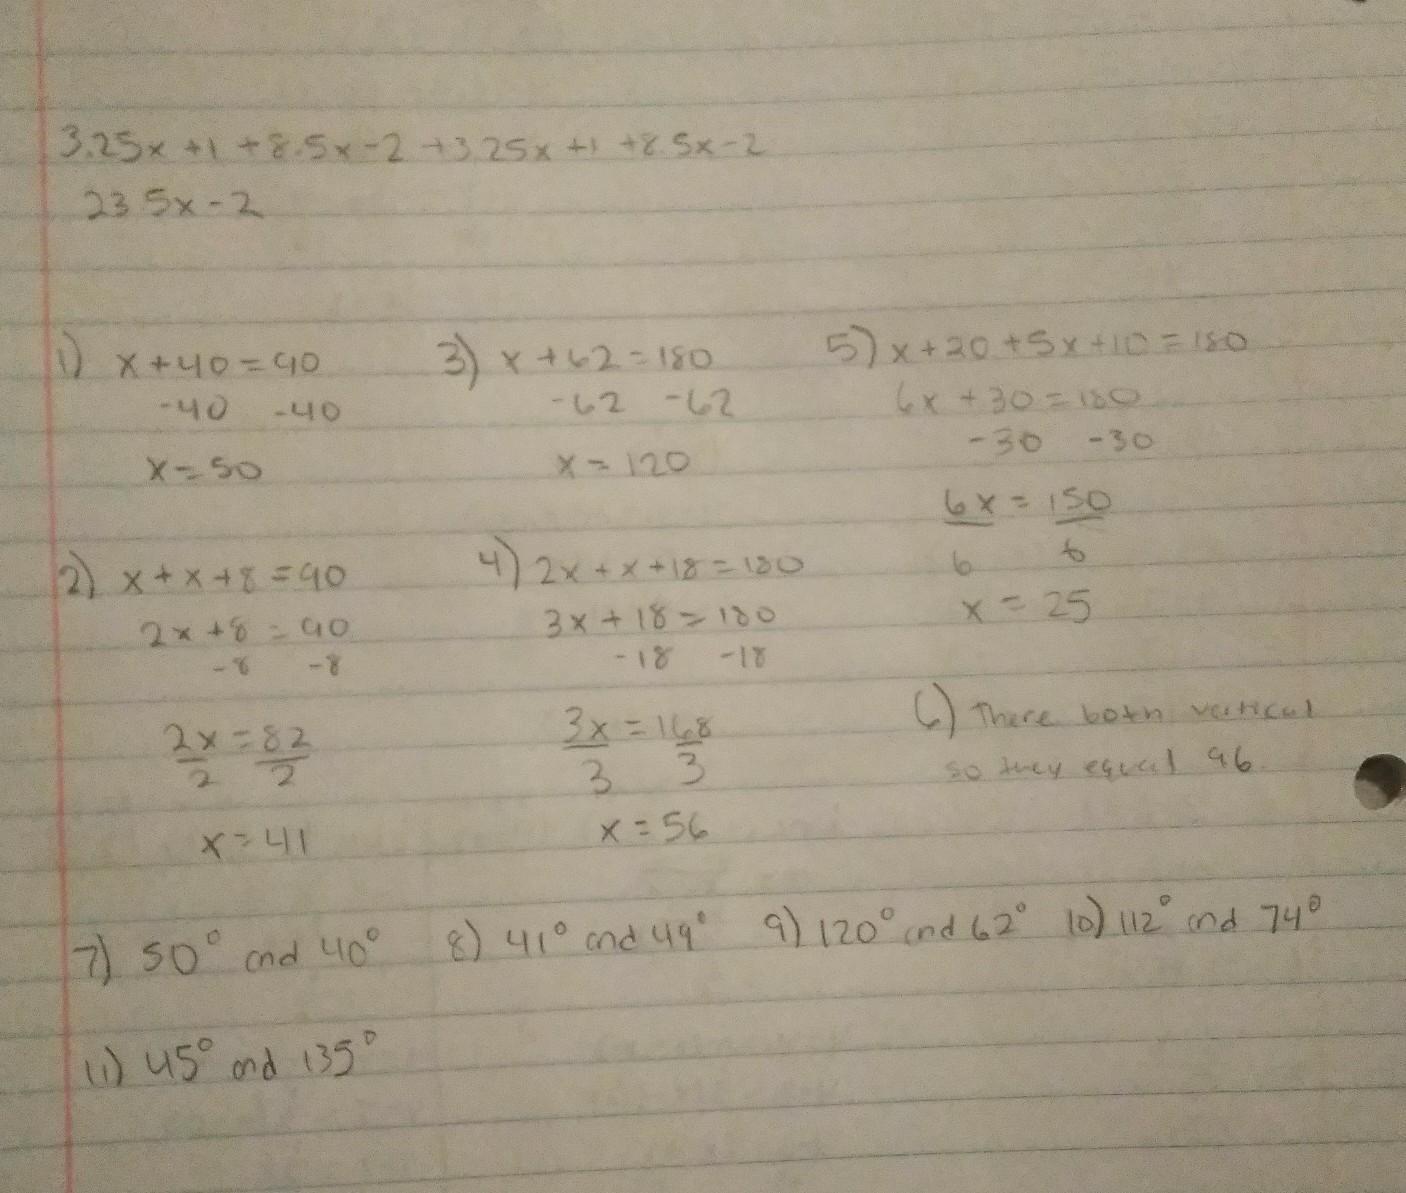 3.25x +1 +8.5x-2 +3.25x +1 +8.5x-2
23.5x-2
1) x+40=90
-40 -40
x=50
2) x+x+8=90
2x+8=90
-8 -8
2x=82
2 2
x=41
3) x+62=180
-62 -62
x=120
4) 2x+x+18=180
3x+18=180
-18 -18
3x=168
3 3
x=56
5) x+20+5x+10=180
6x+30=180
-30 -30
6x=150
6 6
x=25
6) There both vertical
so they equal 96.
7) 50° and 40° 8) 41° and 49° 9) 120° and 62° 10) 112° and 74°
11) 45° and 135°